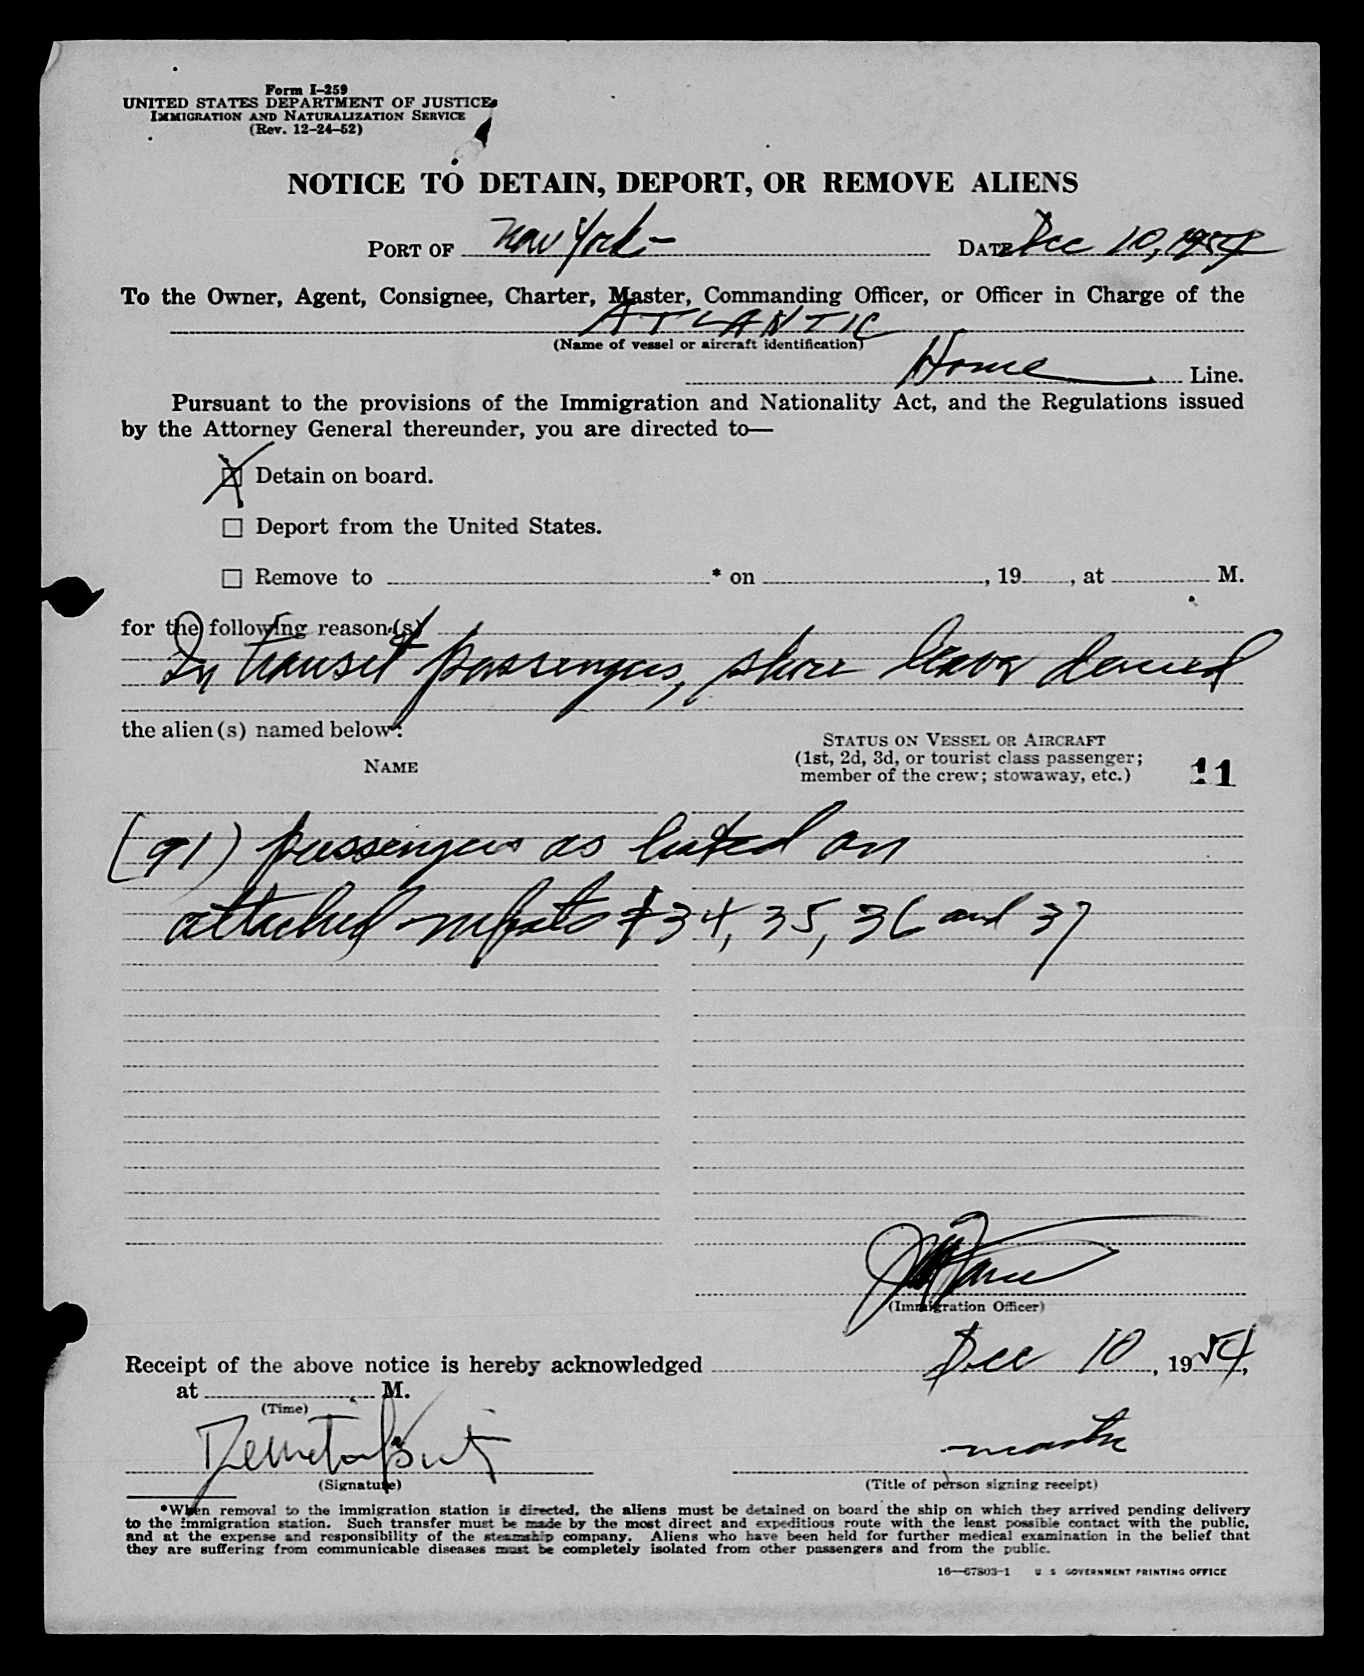 Form I-259
UNITED STATES DEPARTMENT OF JUSTICE
IMMIGRATION AND NATURALIZATION SERVICE
(Rev. 12-24-52)
NOTICE TO DETAIN, DEPORT, OR REMOVE ALIENS
PORT OF New York- DATE Dec 10, 1954
To the Owner, Agent, Consignee, Charter, Master, Commanding Officer, or Officer in Charge of the
ATLANTIC
(Name of vessel or aircraft identification)
Home Line.
Pursuant to the provisions of the Immigration and Nationality Act, and the Regulations issued
by the Attorney General thereunder, you are directed to—
X Detain on board.
☐ Deport from the United States.
☐ Remove to * on , 19 , at M.
for the following reason(s)
In transit passengers, shore leave denied
the alien(s) named below:
NAME
STATUS ON VESSEL OR AIRCRAFT
(1st, 2d, 3d, or tourist class passenger;
member of the crew; stowaway, etc.)
11
(91) passengers as listed on
attached manifests # 34, 35, 36 and 37
(Immigration Officer)
Receipt of the above notice is hereby acknowledged Dec 10, 1954,
at M.
(Time)
master
(Signature) (Title of person signing receipt)
*When removal to the immigration station is directed, the aliens must be detained on board the ship on which they arrived pending delivery
to the immigration station. Such transfer must be made by the most direct and expeditious route with the least possible contact with the public,
and at the expense and responsibility of the steamship company. Aliens who have been held for further medical examination in the belief that
they are suffering from communicable diseases must be completely isolated from other passengers and from the public.
16—67803-1 U S GOVERNMENT PRINTING OFFICE